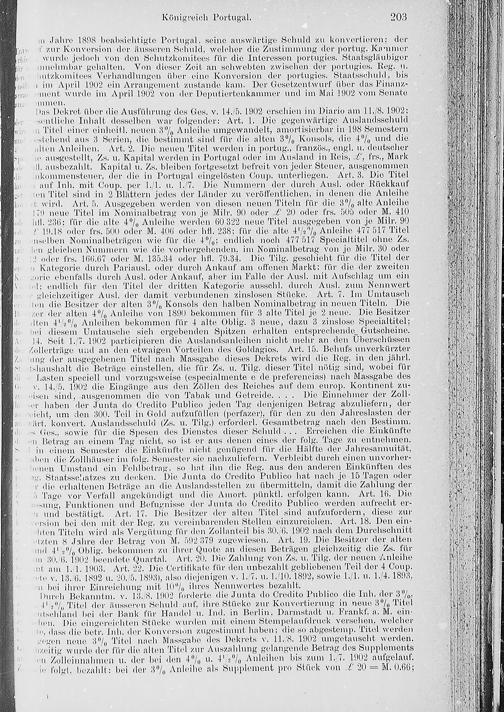 Königreich Portugal. 203
Jahre 1898 beabsichtigte Portugal, seine auswärtige Schuld zu konvertieren; der
zur Konversion der äusseren Schuld, welcher die Zustimmung der portug. Kammer
wurde jedoch von den Schutzkomitees für die Interessen portugies. Staatsgläubiger
gehalten. Von dieser Zeit an schwebten zwischen der portugies. Reg. u.
Verhandlungen über eine Konversion der portugies. Staatsschuld, bis
im April 1902 ein Arrangement zustande kam. Der Gesetzentwurf über das Finanz-
wurde im April 1902 von der Deputiertenkammer und im Mai 1902 vom Senate
Das Dekret über die Ausführung des Ges. v. 14./5. 1902 erschien im Diario am 11./8. 1902;
Inhalt desselben war folgender: Art. 1. Die gegenwärtige Auslandsschuld
Titel einer einheitl. neuen 3% Anleihe umgewandelt, amortisierbar in 198 Semestern
aus 3 Serien, die bestimmt sind für die alten 3% Konsols, die 4% und die
Anleihen. Art. 2. Die neuen Titel werden in portug., französ., engl. u. deutscher
ausgestellt, Zs. u. Kapital werden in Portugal oder im Ausland in Reis, £, frs., Mark
ausbezahlt. Kapital u. Zs. bleiben fortgesetzt befreit von jeder Steuer, ausgenommen
der in Portugal eingelösten Coup. unterliegen. Art. 3. Die Titel
auf Inh. mit Coup. per 1./1. u. 1./7. Die Nummern der durch Ausl. oder Rückkauf
Titel sind in 2 Blättern jedes der Länder zu veröffentlichen, in denen die Anleihe
wird. Art. 5. Ausgegeben werden von diesen neuen Titeln für die 3% alte Anleihe
neue Titel im Nominalbetrag von je Milr. 90 oder £ 20 oder frs. 505 oder M. 410
hfl. 236; für die alte 4% Anleihe werden 60 322 neue Titel ausgegeben von je Milr. 90
£ 19.18 oder frs. 500 oder M. 406 oder hfl. 238; für die alte 4½% Anleihe 477 517 Titel
Nominalbeträgen wie für die 4%; endlich noch 477 517 Specialtitel ohne Zs.
gleichen Nummern wie die vorhergehenden, im Nominalbetrag von je Milr. 30 oder
oder frs. 166.67 oder M. 135.34 oder hfl. 79.34. Die Tilg. geschieht für die Titel der
Kategorie durch Pariausl. oder durch Ankauf am offenen Markt; für die der zweiten
ebenfalls durch Ausl. oder Ankauf, aber im Falle der Ausl. mit Aufschlag um ein
endlich für den Titel der dritten Kategorie aussschl. durch Ausl. zum Nennwert
gleichzeitiger Ausl. der damit verbundenen zinslosen Stücke. Art. 7. Im Umtausch
die Besitzer der alten 3% Konsols den halben Nominalbetrag in neuen Titeln. Die
der alten 4% Anleihe von 1890 bekommen für 3 alte Titel je 2 neue. Die Besitzer
alten 4½% Anleihen bekommen für 4 alte Oblig. 3 neue, dazu 3 zinslose Specialtitel;
diesem Umtausche sich ergebenden Spitzen erhalten entsprechende Gutscheine.
14. Seit 1./7. 1902 participieren die Auslandsanleihen nicht mehr an den Überschüssen
Zollerträge und an den etwaigen Vorteilen des Goldagios. Art. 15. Behufs unverkürzter
der ausgegebenen Titel nach Massgabe dieses Dekrets wird die Reg. in den jährl.
die Beträge einstellen, die für Zs. u. Tilg. dieser Titel nötig sind, wobei für
Lasten speciell und vorzugsweise (especialmente e de preferencias) nach Massgabe des
v. 14./5. 1902 die Eingänge aus den Zöllen des Reiches auf dem europ. Kontinent zu-
sind, ausgenommen die von Tabak und Getreide. . . . Die Einnehmer der Zoll-
haben der Junta do Credito Publico jeden Tag denjenigen Betrag abzuliefern, der
um den 300. Teil in Gold aufzufüllen (perfazer), für den zu den Jahreslasten der
konvert. Auslandsschuld (Zs. u. Tilg.) erforderl. Gesamtbetrag nach den Bestimm.
Ges., sowie für die Spesen des Dienstes dieser Schuld . . . Erreichen die Einkünfte
Betrag an einem Tag nicht, so ist er aus denen eines der folg. Tage zu entnehmen.
in einem Semester die Einkünfte nicht genügend für die Hälfte der Jahresannuität,
die Zollhäuser im folg. Semester sie nachzuliefern. Verbleibt durch einen unvorher-
Umstand ein Fehlbetrag, so hat ihn die Reg. aus den anderen Einkünften des
Staatsschatzes zu decken. Die Junta do Credito Publico hat nach je 15 Tagen oder
die erhaltenen Beträge an die Auslandsstellen zu übermitteln, damit die Zahlung der
Tage vor Verfall angekündigt und die Amort. pünktl. erfolgen kann. Art. 16. Die
Funktionen und Befugnisse der Junta do Credito Publico werden aufrecht er-
und bestätigt. Art. 17. Die Besitzer der alten Titel sind aufzufordern, diese zur
bei den mit der Reg. zu vereinbarenden Stellen einzureichen. Art. 18. Den ein-
Titeln wird als Vergütung für den Zollanteil bis 30./6. 1902 nach dem Durchschnitt
8 Jahre der Betrag von M. 592 379 zugewiesen. Art. 19. Die Besitzer der alten
und 4½% Oblig. bekommen zu ihrer Quote an diesen Beträgen gleichzeitig die Zs. für
30./6. 1902 beendete Quartal. Art. 20. Die Zahlung von Zs. u. Tilg. der neuen Anleihe
am 1./1. 1903. Art. 22. Die Certifikate für den unbezahlt gebliebenen Teil der 4 Coup.
v. 13./6. 1892 u. 20./5. 1893), also diejenigen v. 1./7. u. 1./10. 1892, sowie 1./1. u. 1./4. 1893,
bei ihrer Einreichung mit 10% ihres Nennwertes bezahlt.
Durch Bekanntm. v. 13./8. 1902 forderte die Junta do Credito Publico die Inh. der 3%,
4½% Titel der äusseren Schuld auf, ihre Stücke zur Konvertierung in neue 3% Titel
bei der Bank für Handel u. Ind. in Berlin, Darmstadt u. Frankf. a. M. ein-
Die eingereichten Stücke wurden mit einem Stempelaufdruck versehen, welcher
dass die betr. Inh. der Konversion zugestimmt haben; die so abgestemp. Titel werden
neue 3% Titel nach Massgabe des Dekrets v. 11./8. 1902 umgetauscht werden.
wurde der für die alten Titel zur Auszahlung gelangende Betrag des Supplements
Zolleinnahmen u. der bei den 4% u. 4½% Anleihen bis zum 1./7. 1902 aufgelauf.
folgt, bezahlt: bei der 3% Anleihe als Supplement pro Stück von £ 20 = M. 0.66;